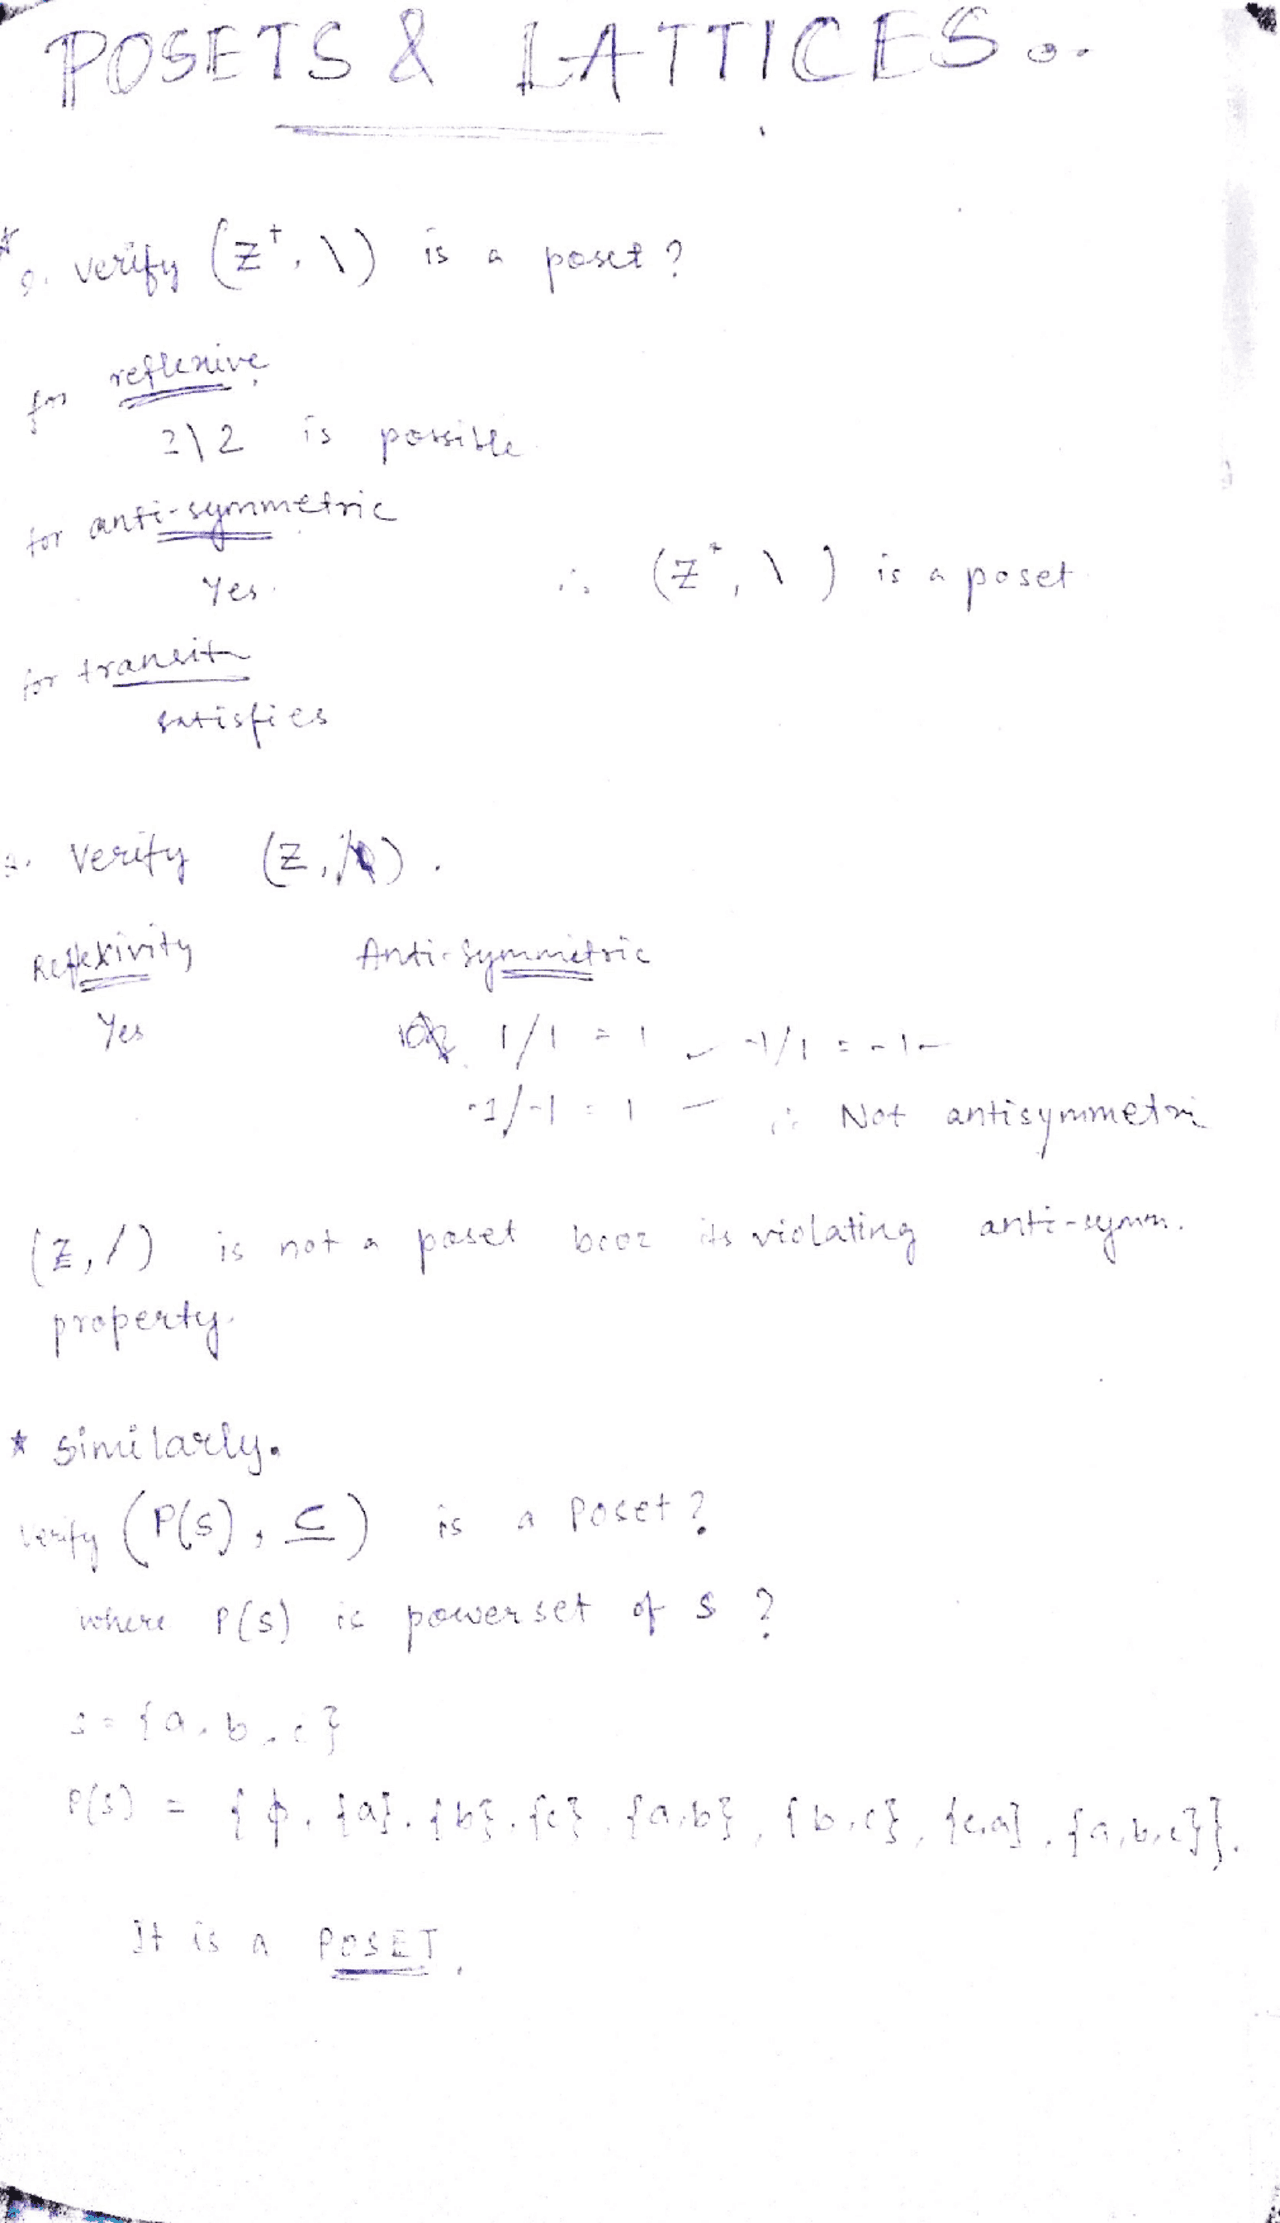 POSETS & LATTICES...
* Q. verify (Z⁺, \) is a poset?
for reflexive,
2\2 is possible
for anti-symmetric
Yes.
∴ (Z⁺, \ ) is a poset
for transit
satisfies
Verify (Z, /).
Reflexivity Anti-Symmetric
Yes 1/1 = 1 -1/1 = -1
-1/-1 = 1 ∴ Not antisymmetri
(Z, /) is not a poset its violating anti-symm.
property.
* Similarly.
Verify (P(S), ⊆) is a Poset?
where P(S) is powerset of S ?
S = {a, b, c}
P(S) = {φ, {a}, {b}, {c}, {a,b}, {b,c}, {c,a}, {a,b,c}}.
It is a POSET.